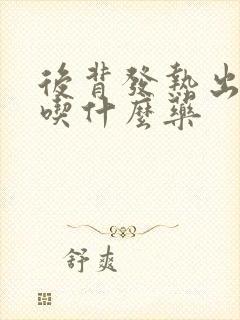 後背發熱出
喫什麼藥
舒爽